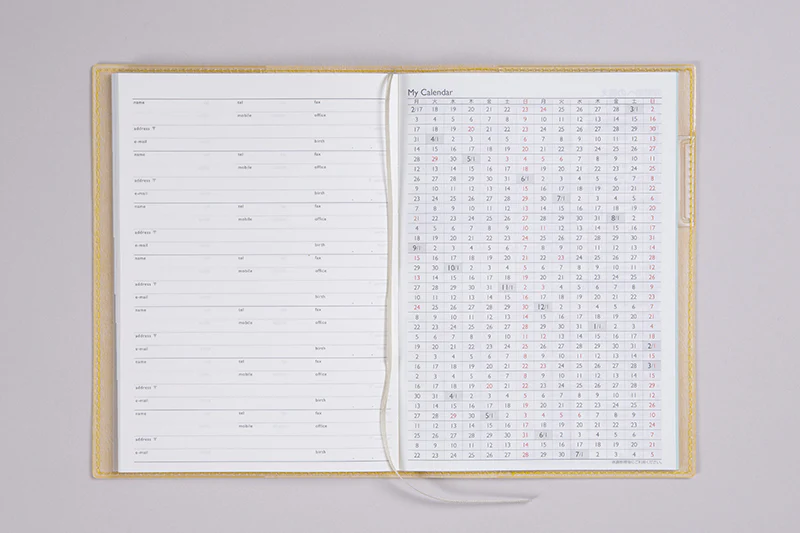 name tel fax
mobile office
address 〒
e-mail birth
name tel fax
mobile office
address 〒
e-mail birth
name tel fax
mobile office
address 〒
e-mail birth
name tel fax
mobile office
address 〒
e-mail birth
name tel fax
mobile office
address 〒
e-mail birth
name tel fax
mobile office
address 〒
e-mail birth
name tel fax
mobile office
address 〒
e-mail birth
My Calendar
月 火 水 木 金 土 日 月 火 水 木 金 土 日
2/17 18 19 20 21 22 23 24 25 26 27 28 3/1 2
3 4 5 6 7 8 9 10 11 12 13 14 15 16
17 18 19 20 21 22 23 24 25 26 27 28 29 30
31 4/1 2 3 4 5 6 7 8 9 10 11 12 13
14 15 16 17 18 19 20 21 22 23 24 25 26 27
28 29 30 5/1 2 3 4 5 6 7 8 9 10 11
12 13 14 15 16 17 18 19 20 21 22 23 24 25
26 27 28 29 30 31 6/1 2 3 4 5 6 7 8
9 10 11 12 13 14 15 16 17 18 19 20 21 22
23 24 25 26 27 28 29 30 7/1 2 3 4 5 6
7 8 9 10 11 12 13 14 15 16 17 18 19 20
21 22 23 24 25 26 27 28 29 30 31 8/1 2 3
4 5 6 7 8 9 10 11 12 13 14 15 16 17
18 19 20 21 22 23 24 25 26 27 28 29 30 31
9/1 2 3 4 5 6 7 8 9 10 11 12 13 14
15 16 17 18 19 20 21 22 23 24 25 26 27 28
29 30 10/1 2 3 4 5 6 7 8 9 10 11 12
13 14 15 16 17 18 19 20 21 22 23 24 25 26
27 28 29 30 31 11/1 2 3 4 5 6 7 8 9
10 11 12 13 14 15 16 17 18 19 20 21 22 23
24 25 26 27 28 29 30 12/1 2 3 4 5 6 7
8 9 10 11 12 13 14 15 16 17 18 19 20 21
22 23 24 25 26 27 28 29 30 31 1/1 2 3 4
5 6 7 8 9 10 11 12 13 14 15 16 17 18
19 20 21 22 23 24 25 26 27 28 29 30 31 2/1
2 3 4 5 6 7 8 9 10 11 12 13 14 15
16 17 18 19 20 21 22 23 24 25 26 27 28 3/1
2 3 4 5 6 7 8 9 10 11 12 13 14 15
16 17 18 19 20 21 22 23 24 25 26 27 28 29
30 31 4/1 2 3 4 5 6 7 8 9 10 11 12
13 14 15 16 17 18 19 20 21 22 23 24 25 26
27 28 29 30 5/1 2 3 4 5 6 7 8 9 10
11 12 13 14 15 16 17 18 19 20 21 22 23 24
25 26 27 28 29 30 31 6/1 2 3 4 5 6 7
8 9 10 11 12 13 14 15 16 17 18 19 20 21
22 23 24 25 26 27 28 29 30 7/1 2 3 4 5